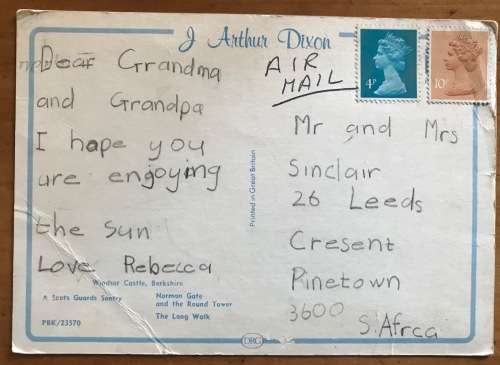 J Arthur Dixon
Dear Grandma
and Grandpa
I hope you
are engoying
the sun
Love Rebecca
Windsor Castle, Berkshire
A Scots Guards Sentry
Norman Gate
and the Round Tower
The Long Walk
PBK/23570
Printed in Great Britain
DRG
AIR
MAIL
4P
10P
Mr and Mrs
Sinclair
26 Leeds
Cresent
Pinetown
3600
S.Afrca